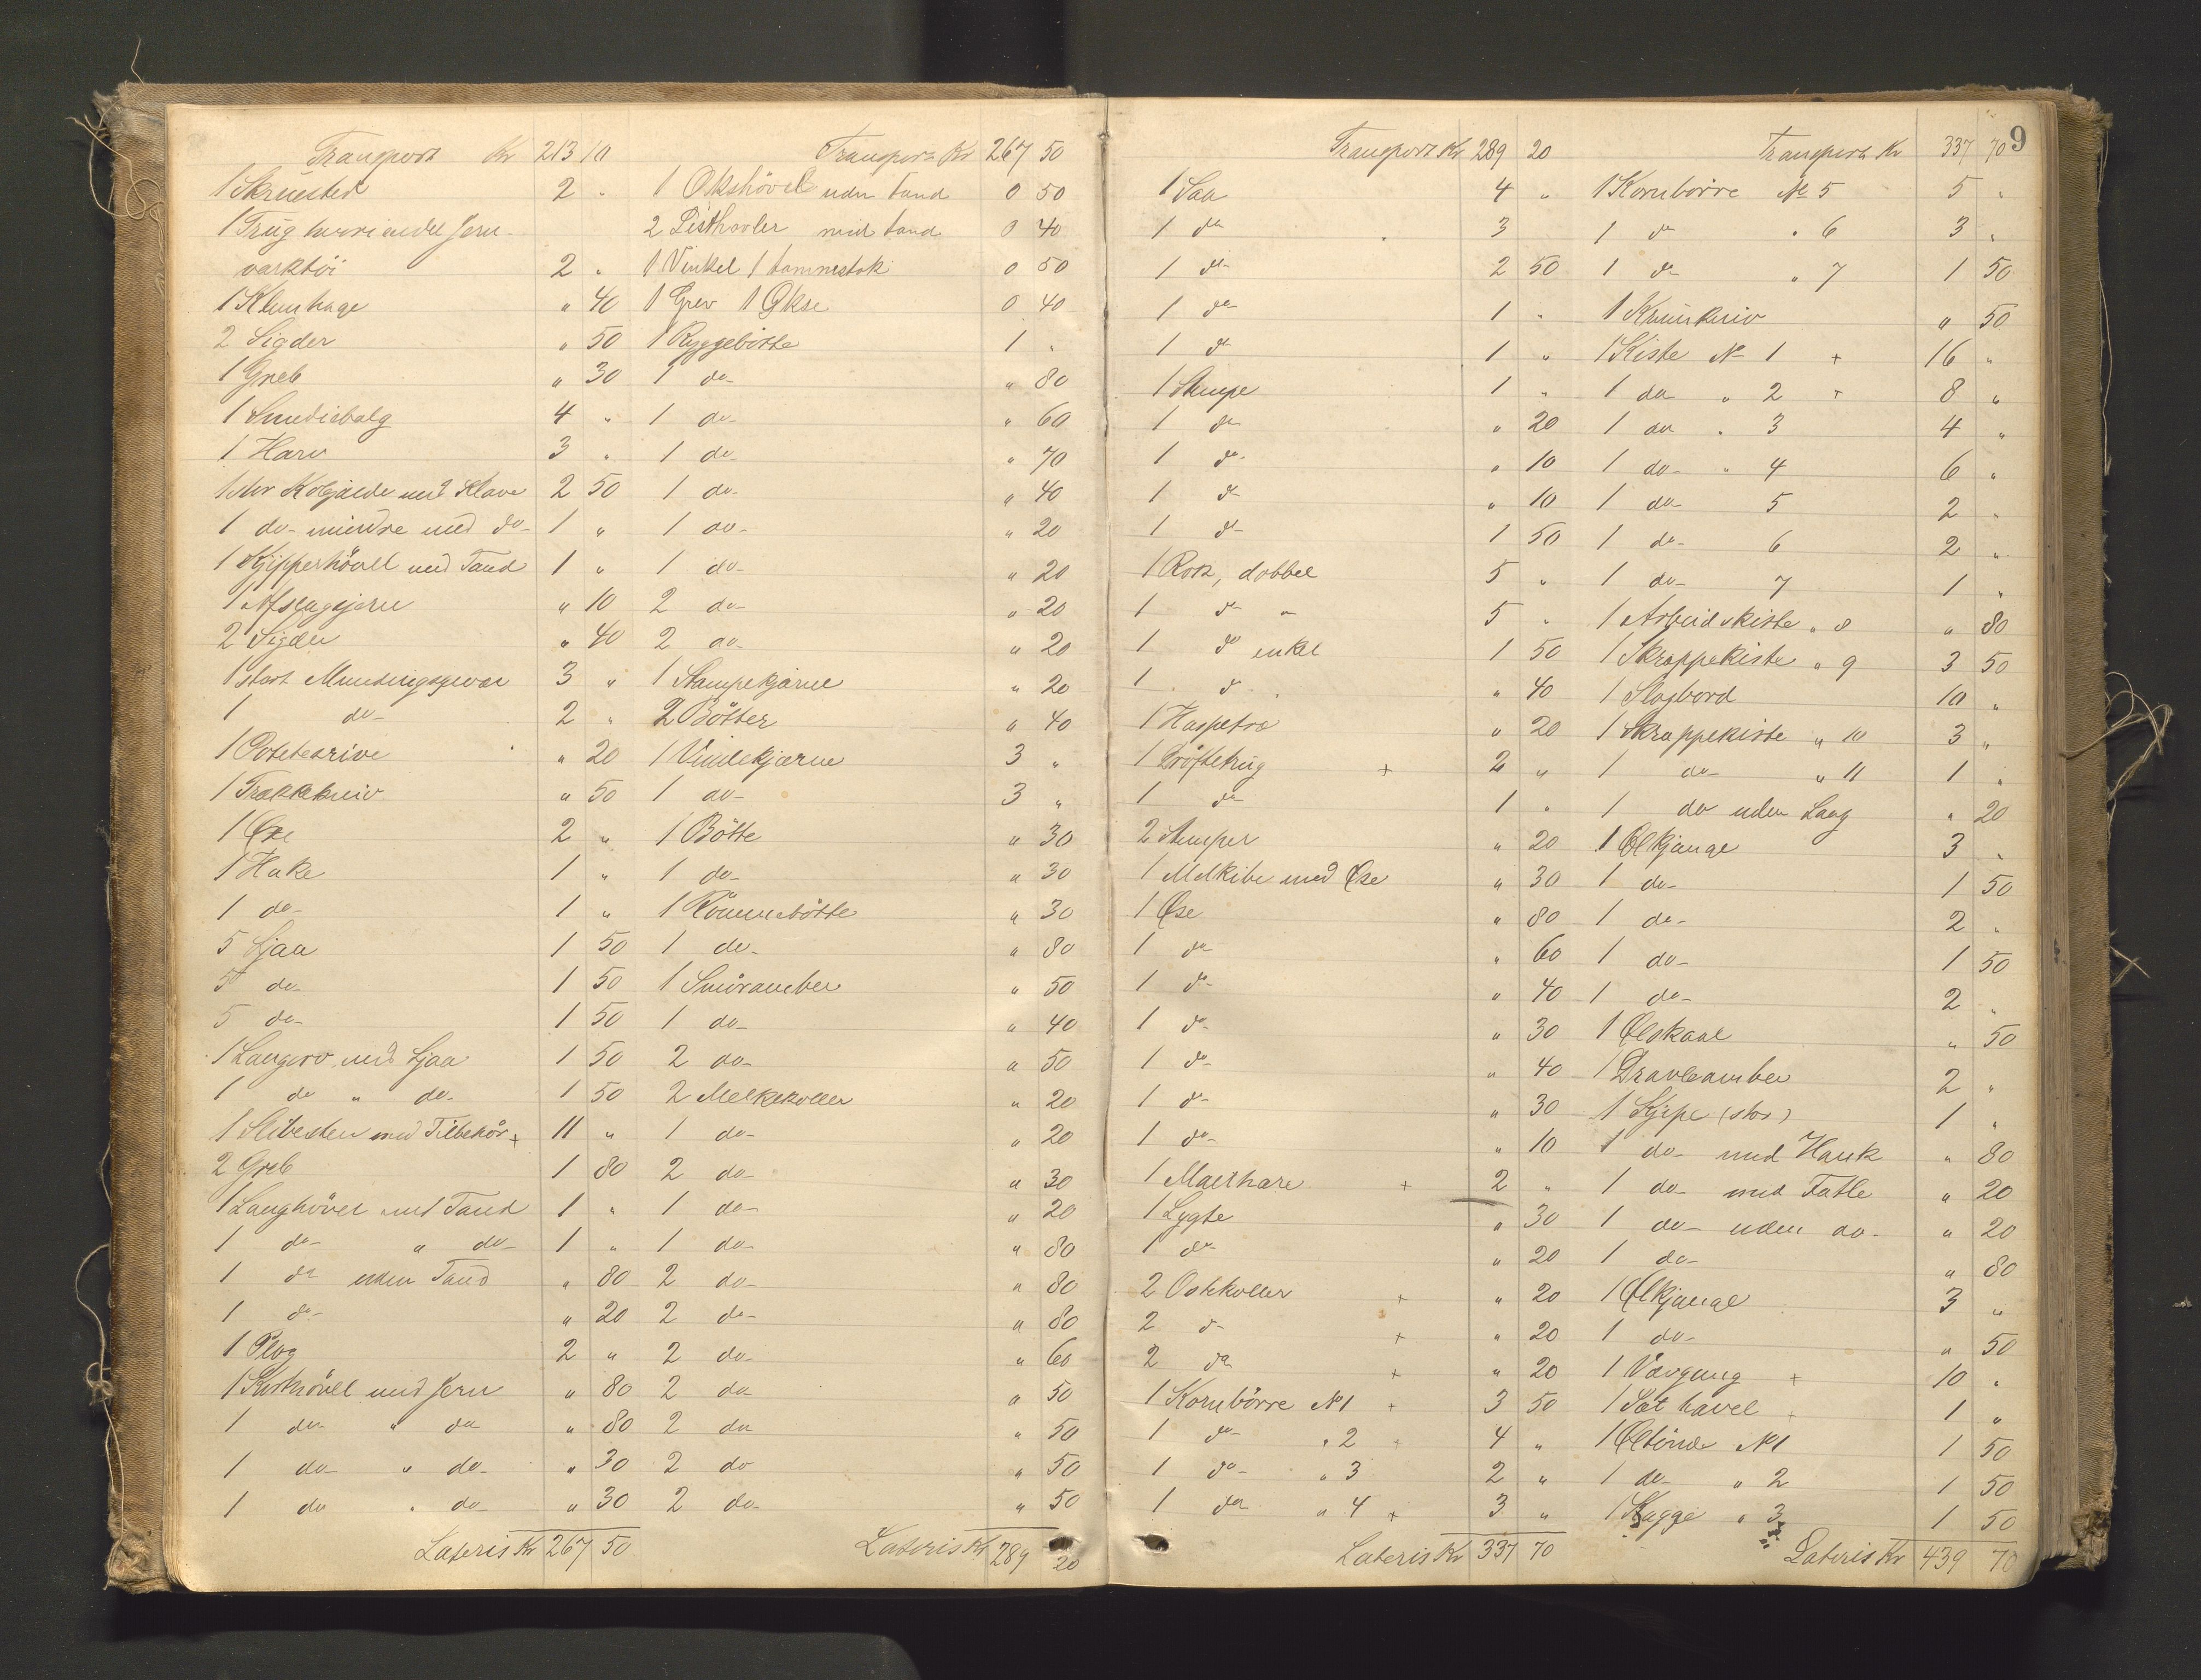 Transport Kr 213 10
1 Skruested 2 "
1 Trug hvori endel Jern-
værktöi 2 "
1 Klumhage " 40
2 Sigder " 50
1 Greb " 30
1 Smediebælg 4 "
1 Harv 3 "
1 Kobjælde med Klave 2 50
1 do mindre med do 1 "
1 Kjipperhövel med Tand 1 "
1 Afslagsjern " 10
2 Sigder " 40
1 stort Mundingsgevær 3 "
1 do 2 "
1 Potetesrive " 20
1 Trækkekniv " 50
1 Öxe 2 "
1 Hake 1 "
1 do 1 "
5 Ljaa 1 50
5 do 1 50
5 do 1 50
1 Langorv med Ljaa 1 50
1 do " do 1 50
1 Slibesten med Tilbehör + 11 "
2 Greb 1 80
1 Langhövel med Tand 1 "
1 do " do 1 "
1 do uden Tand " 80
1 do " 20
1 Plog 2 "
1 Kisthövel med Jern " 80
1 do " do " 80
1 do " do " 30
1 do " do " 30
Lateris Kr 267 50
Transport Kr 267 50
1 Okshövel uden tand 0 50
2 Listhövler med tand 0 40
1 Vinkel 1 tommestok 0 50
1 Grev 1 Økse 0 40
1 Byggebötte 1 "
1 do " 80
1 do " 60
1 do " 70
1 do " 40
1 do " 20
1 do " 20
2 do " 20
2 do " 20
1 Stampekjærne " 20
2 Bötter " 40
1 Vindekjærne 3 "
1 do 3 "
1 Bötte " 30
1 do " 30
1 Römmebötte " 30
1 do " 80
1 Smöramber " 50
1 do " 40
2 do " 50
2 Melkekoller " 20
1 do " 20
2 do " 30
1 do " 20
1 do " 80
2 do " 80
2 do " 80
2 do " 60
2 do " 50
2 do " 50
2 do " 50
2 do " 50
Lateris Kr 289 20
Transport Kr 289 20
1 Saa 4 "
1 do 3
1 do 2 50
1 do 1 "
1 do 1 "
1 Stampe 1 "
1 do " 20
1 do " 10
1 do " 10
1 do 1 50
1 Rok, dobbel 5 "
1 do " 5 "
1 do enkel 1 50
1 do " " 40
1 Haspetræ " 20
1 Dröftetrug + 2 "
1 do 1 "
2 Stamper " 20
1 Melkibe med Øse " 30
1 Øse " 80
1 do " 60
1 do " 40
1 do " 30
1 do " 40
1 do " 30
1 do " 10
1 Malthare + 2 "
1 Lygte " 30
1 do " 20
2 Ostekoller + " 20
2 do + " 20
2 do + " 20
1 Kornbörre No 1 + 3 50
1 do " 2 + 4 "
1 do " 3 2 "
1 do " 4 + 3 "
Lateris Kr 337 70
9
Transport Kr 337 70
1 Kornbörre No 5 5 "
1 do " 6 3 "
1 do " 7 1 50
1 Krumkniv " 50
1 Kiste No 1 + 16 "
1 do " 2 + 8 "
1 do " 3 4 "
1 do " 4 6 "
1 do 5 2 "
1 do 6 2 "
1 do 7 1 "
1 Arbeidskiste " 8 " 80
1 Skrappekiste " 9 3 50
1 Slagbord 10 "
1 Skrappekiste " 10 3 "
1 do " 11 1 "
1 do uden Laag " 20
1 Ølkjænge 3 "
1 do 1 50
1 do 2 "
1 do 1 50
1 do 2 "
1 Ølskaal " 50
1 Dravleamber 2 "
1 Kjipe (stor) 1 "
1 do med Hank " 80
1 do med Fatle " 20
1 do uden do " 20
1 do " 80
1 Ølkjænge 3 "
1 do " 50
1 Vævgang + 10 "
1 Sæt havel + 1 "
1 Øltönde No 1 1 50
1 do " 2 1 50
1 Kagge " 3 1 50
Lateris Kr 439 70